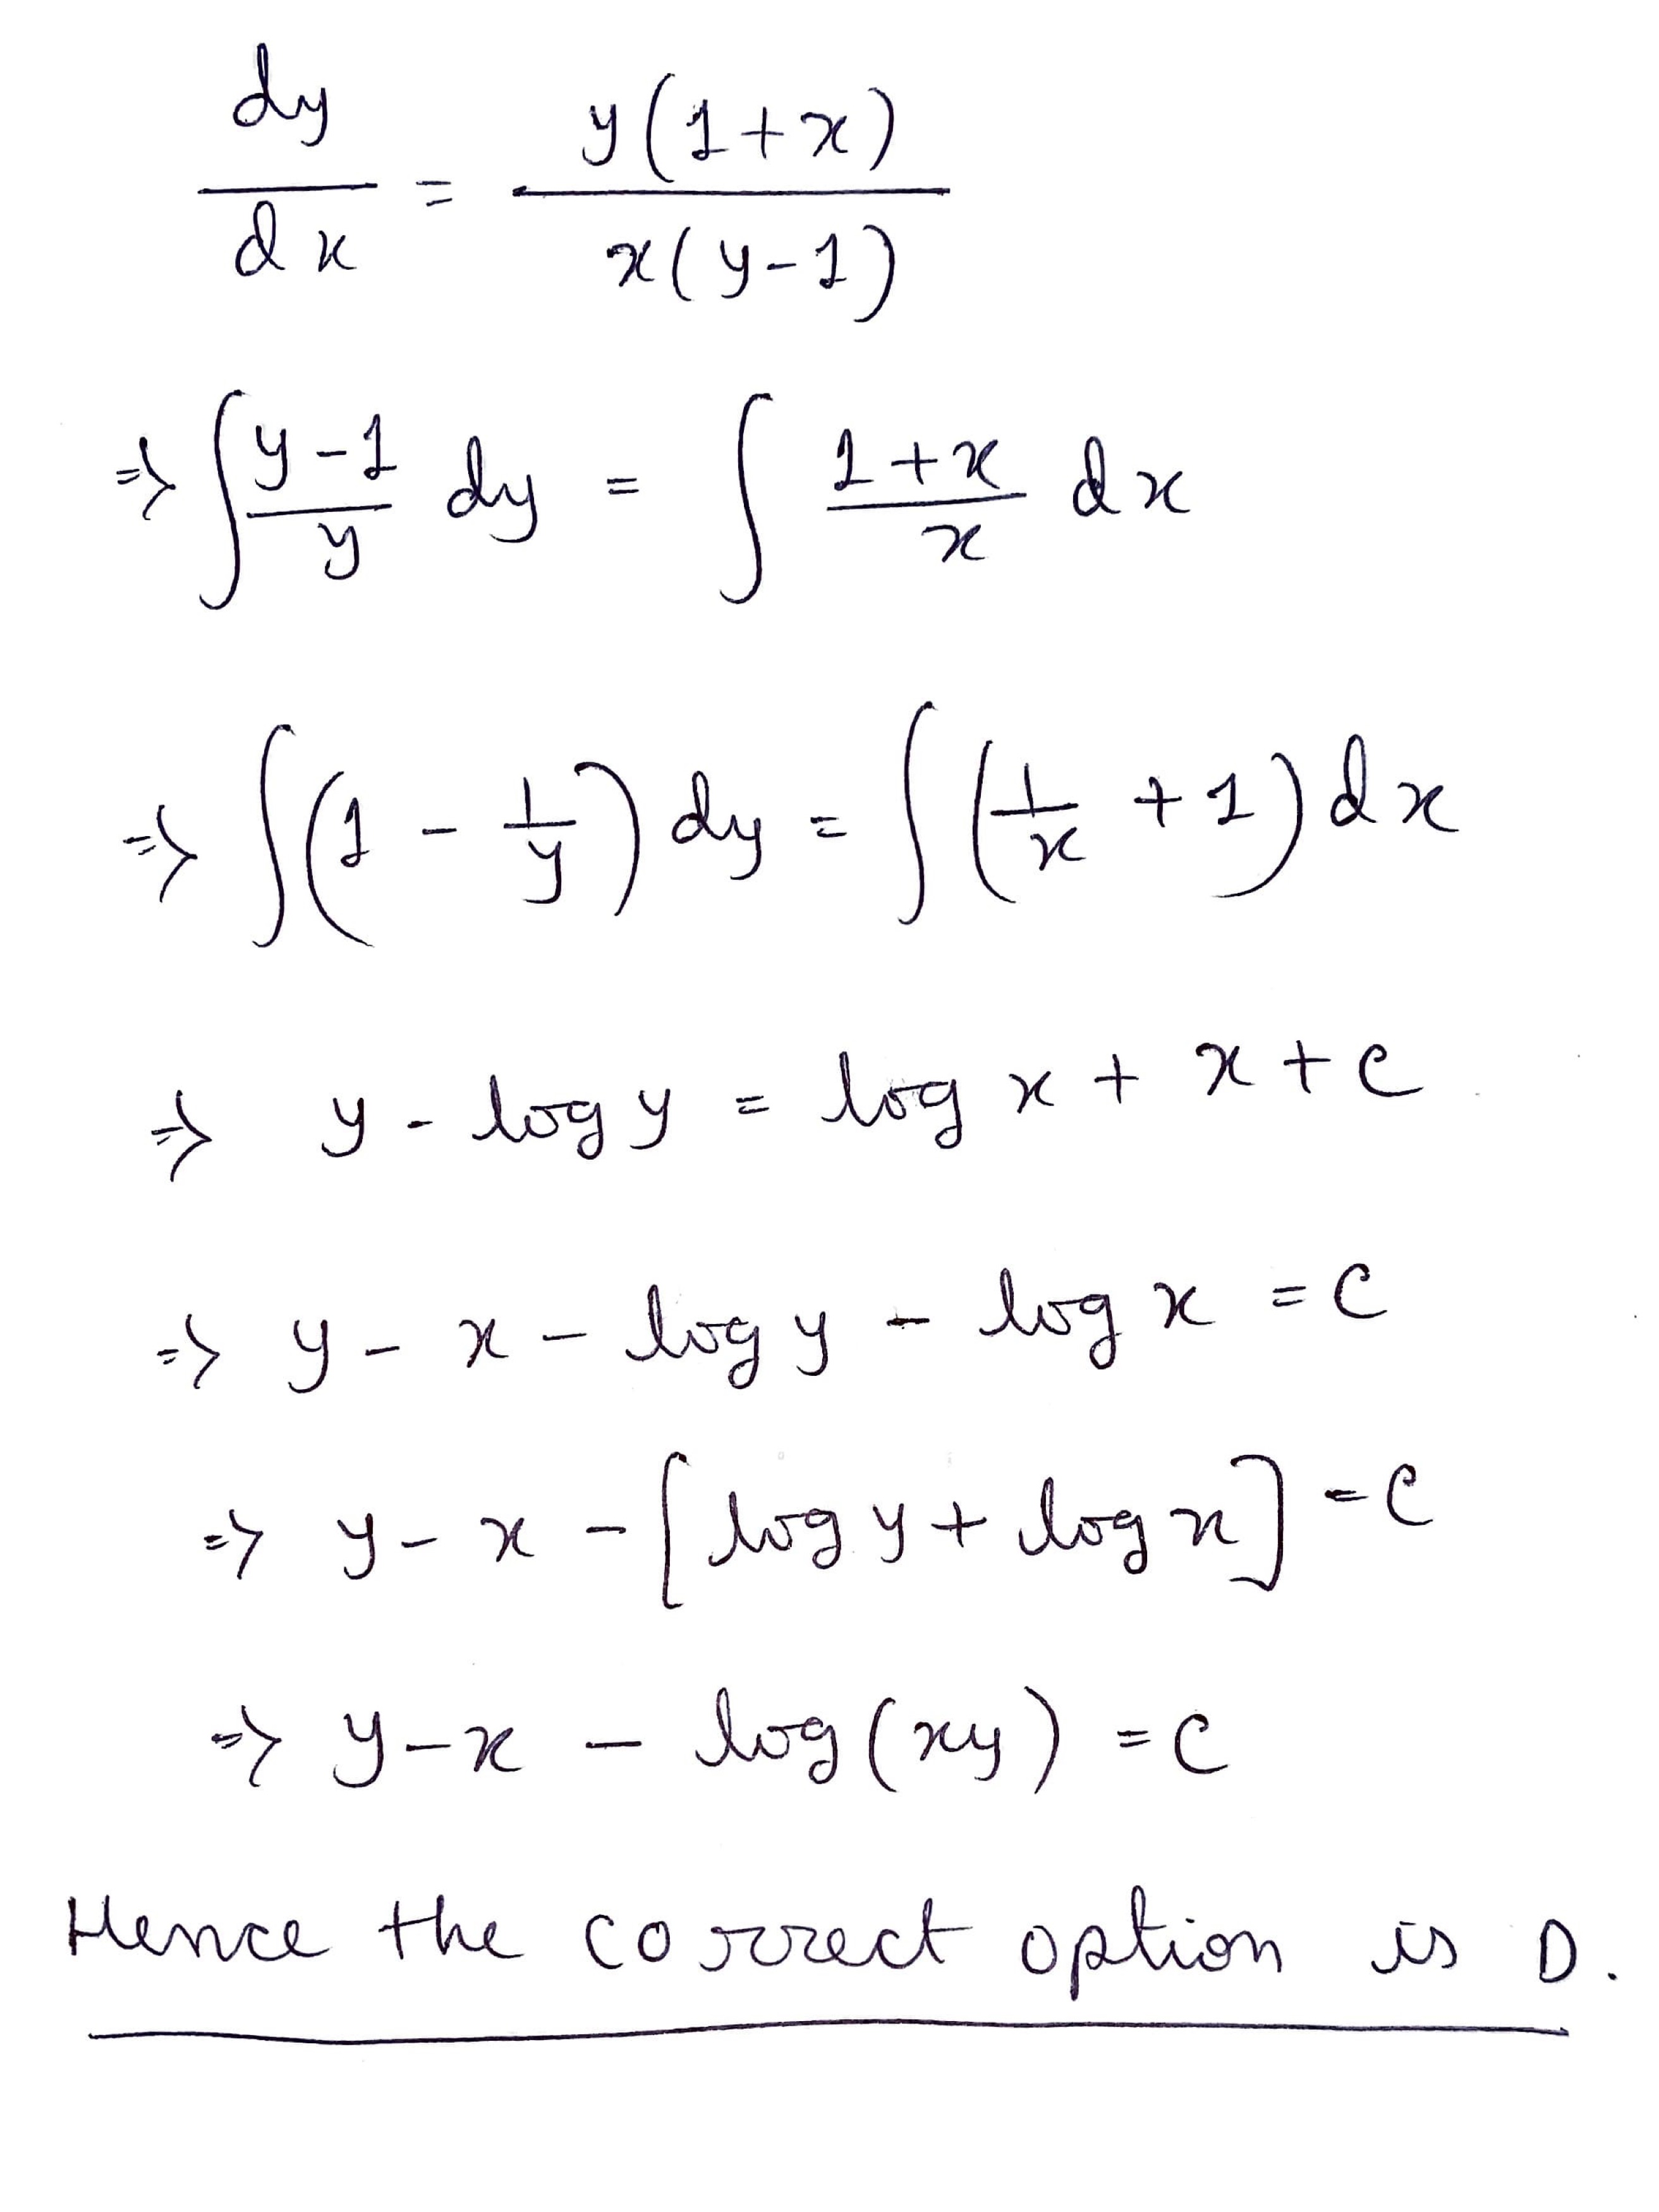 dy/dx = y(1+x)/x(y-1)
=> ∫ y-1/y dy = ∫ 1+x/x dx
=> ∫(1 - 1/y) dy = ∫(1/x + 1) dx
=> y - log y = log x + x + c
=> y - x - log y - log x = c
=> y - x - [log y + log x] = c
=> y - x - log(xy) = c
Hence the correct option is D.